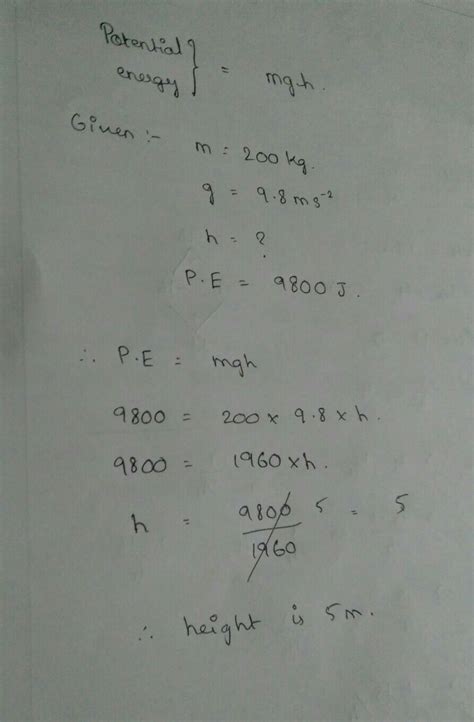 Potential
energy } = mgh.
Given :-
m = 200 kg.
g = 9.8 ms⁻²
h = ?
P.E = 9800 J.
∴ P.E = mgh
9800 = 200 × 9.8 × h.
9800 = 1960 × h.
h = 9800/1960 5 = 5
∴ height is 5m.